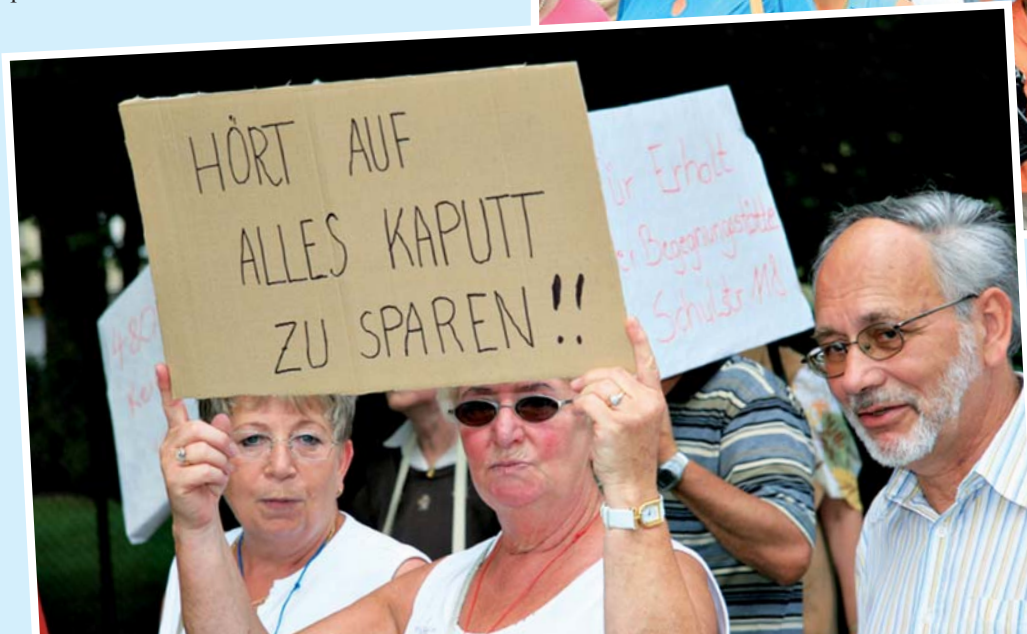 HÖRT AUF
ALLES KAPUTT
ZU SPAREN!!
ür Erhalt
Begegnungsstätte
Schulstr
480
Ke